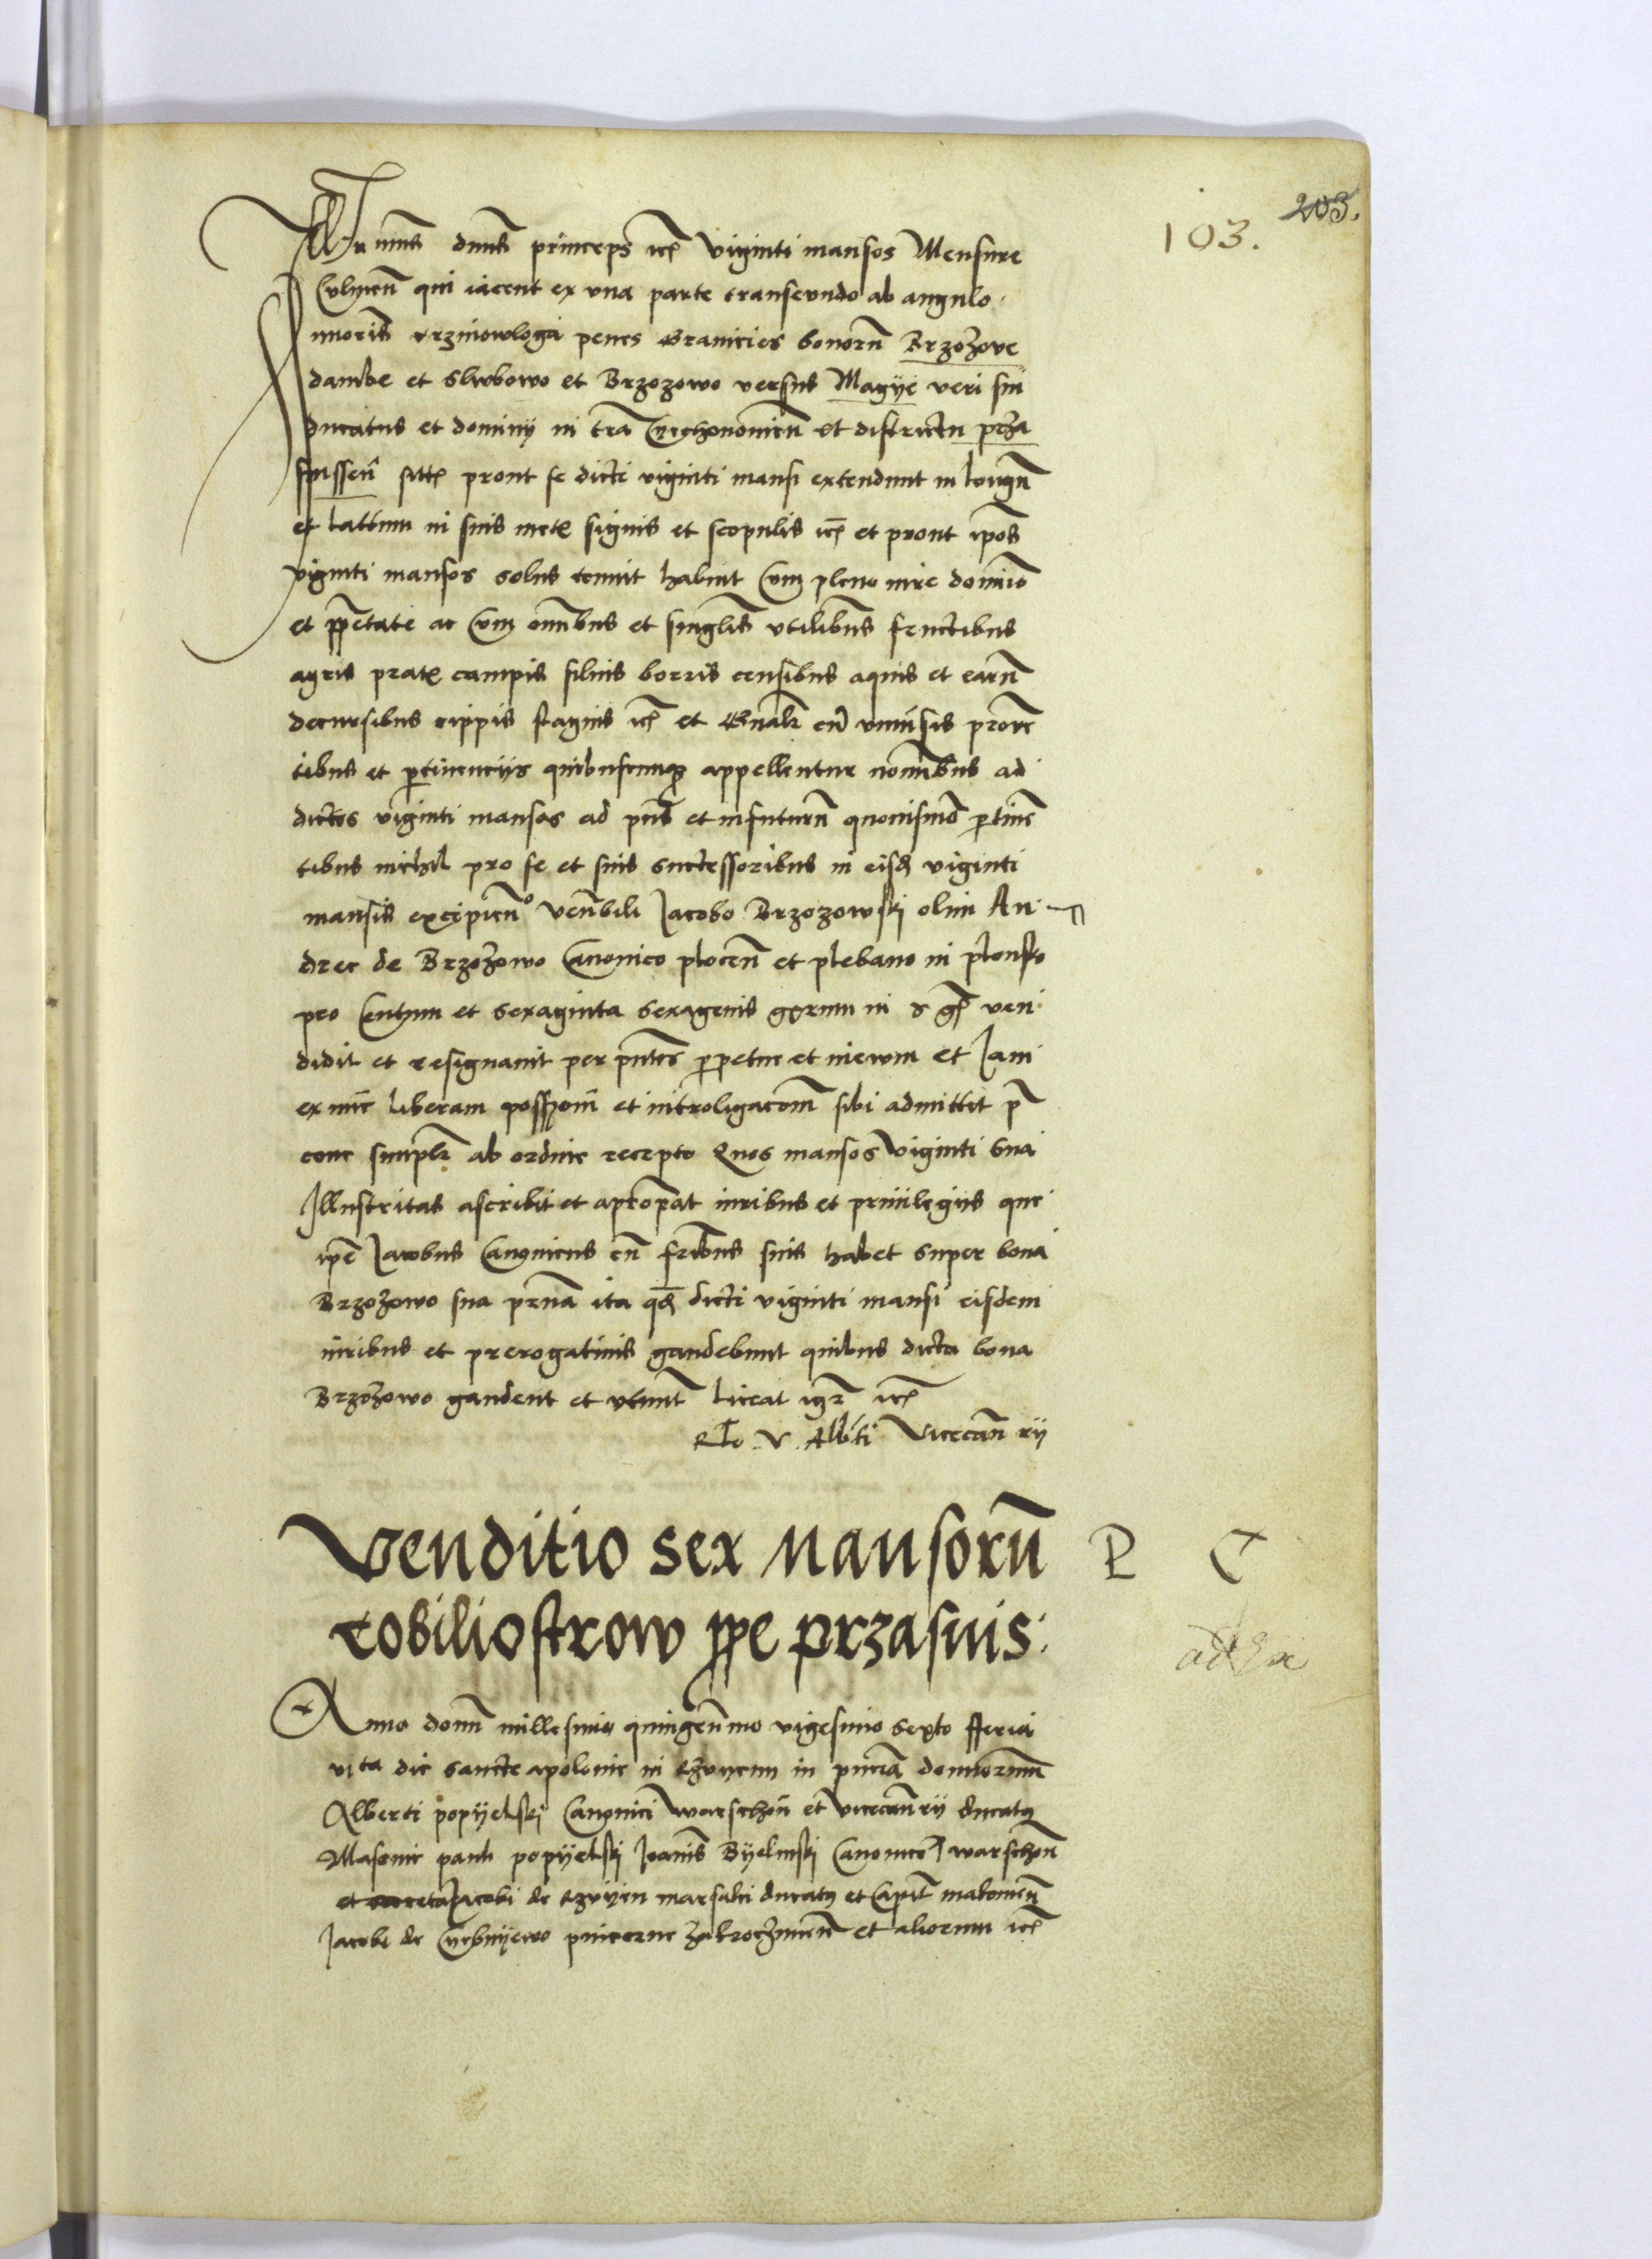 203.
103.
Illmus dnus princeps etc viginti mansos Mensure
Culmen̄ qui iacent ex una parte transeundo ab angulo
minoris Krzinowloga penes Granicies bonorū Brzozowe
dambe et Slubowo et Brzozowo versus Magije veri sui
ducatus et dominij in tra Cyechonomien̄ et districtu prza
snissen̄ sitt prout se dicti viginti mansi extendunt in longū
et lattum in suis mets signis et scopulis etc et prout ipos
viginti mansos solus tenuit habuit Cum pleno iure dominio
et ppetate ac Cum omībus et singlis utilibus fructibus
agris prats campis siluis borris censibus aquis et earū
decursibus rippis stagnis etc et Gnalr cū vniuersis prouē
tibus et ptinencijs quibuscunq appellentur nominibus ad
dictos viginti mansos ad pns et in futurū quouismō ptinē
tibus nichil pro se et suis successoribus in eisd viginti
mansis excipiendo Venbili Jacobo Brzozowski olim An
dree de Brzozowo Canonico plocen̄ et plebano in plonsko
pro Centum et sexaginta sexagenis grorum in s g ven
didit et resignauit per pntes perpetue et in ewm et Jam
ex nūc liberam possionē et intrroligacom sibi admittit p
cone simplr ab ordine recepto Quos mansos Viginti sua
Illustritas ascribit et approprat iuribus et priuilegijs que
ipe Jacobus Canonicus cū fribus suis habet super bona
Brzozowo sua prna ita qd dicti viginti mansi eisdem
iuribus et prerogatiuis gaudebunt quibus dicta bona
Brzozowo gaudent et utunt liceat igr etc
Rlo V Albti Vicecan̄rij
Venditio sex Mansorū
Cobiliostrow ppe przasnis
P C
Anno domī millesimo quingen̄mo vigesimo sexto fferia
vita die sancte apolonie in Rzvyenn in pncia domīorum
Alberti popijelski Canonici Warschon̄ et vicecan̄rij ducatus
Masouie pauli popijelski Joanis Byelinski Canonicor warschon̄
et Jacobi de Rzvyen marsalci ducatus et Capit makouien̄
Jacobi de Cyebnijewo pincerne Zakroczimien̄ et aliorum etc